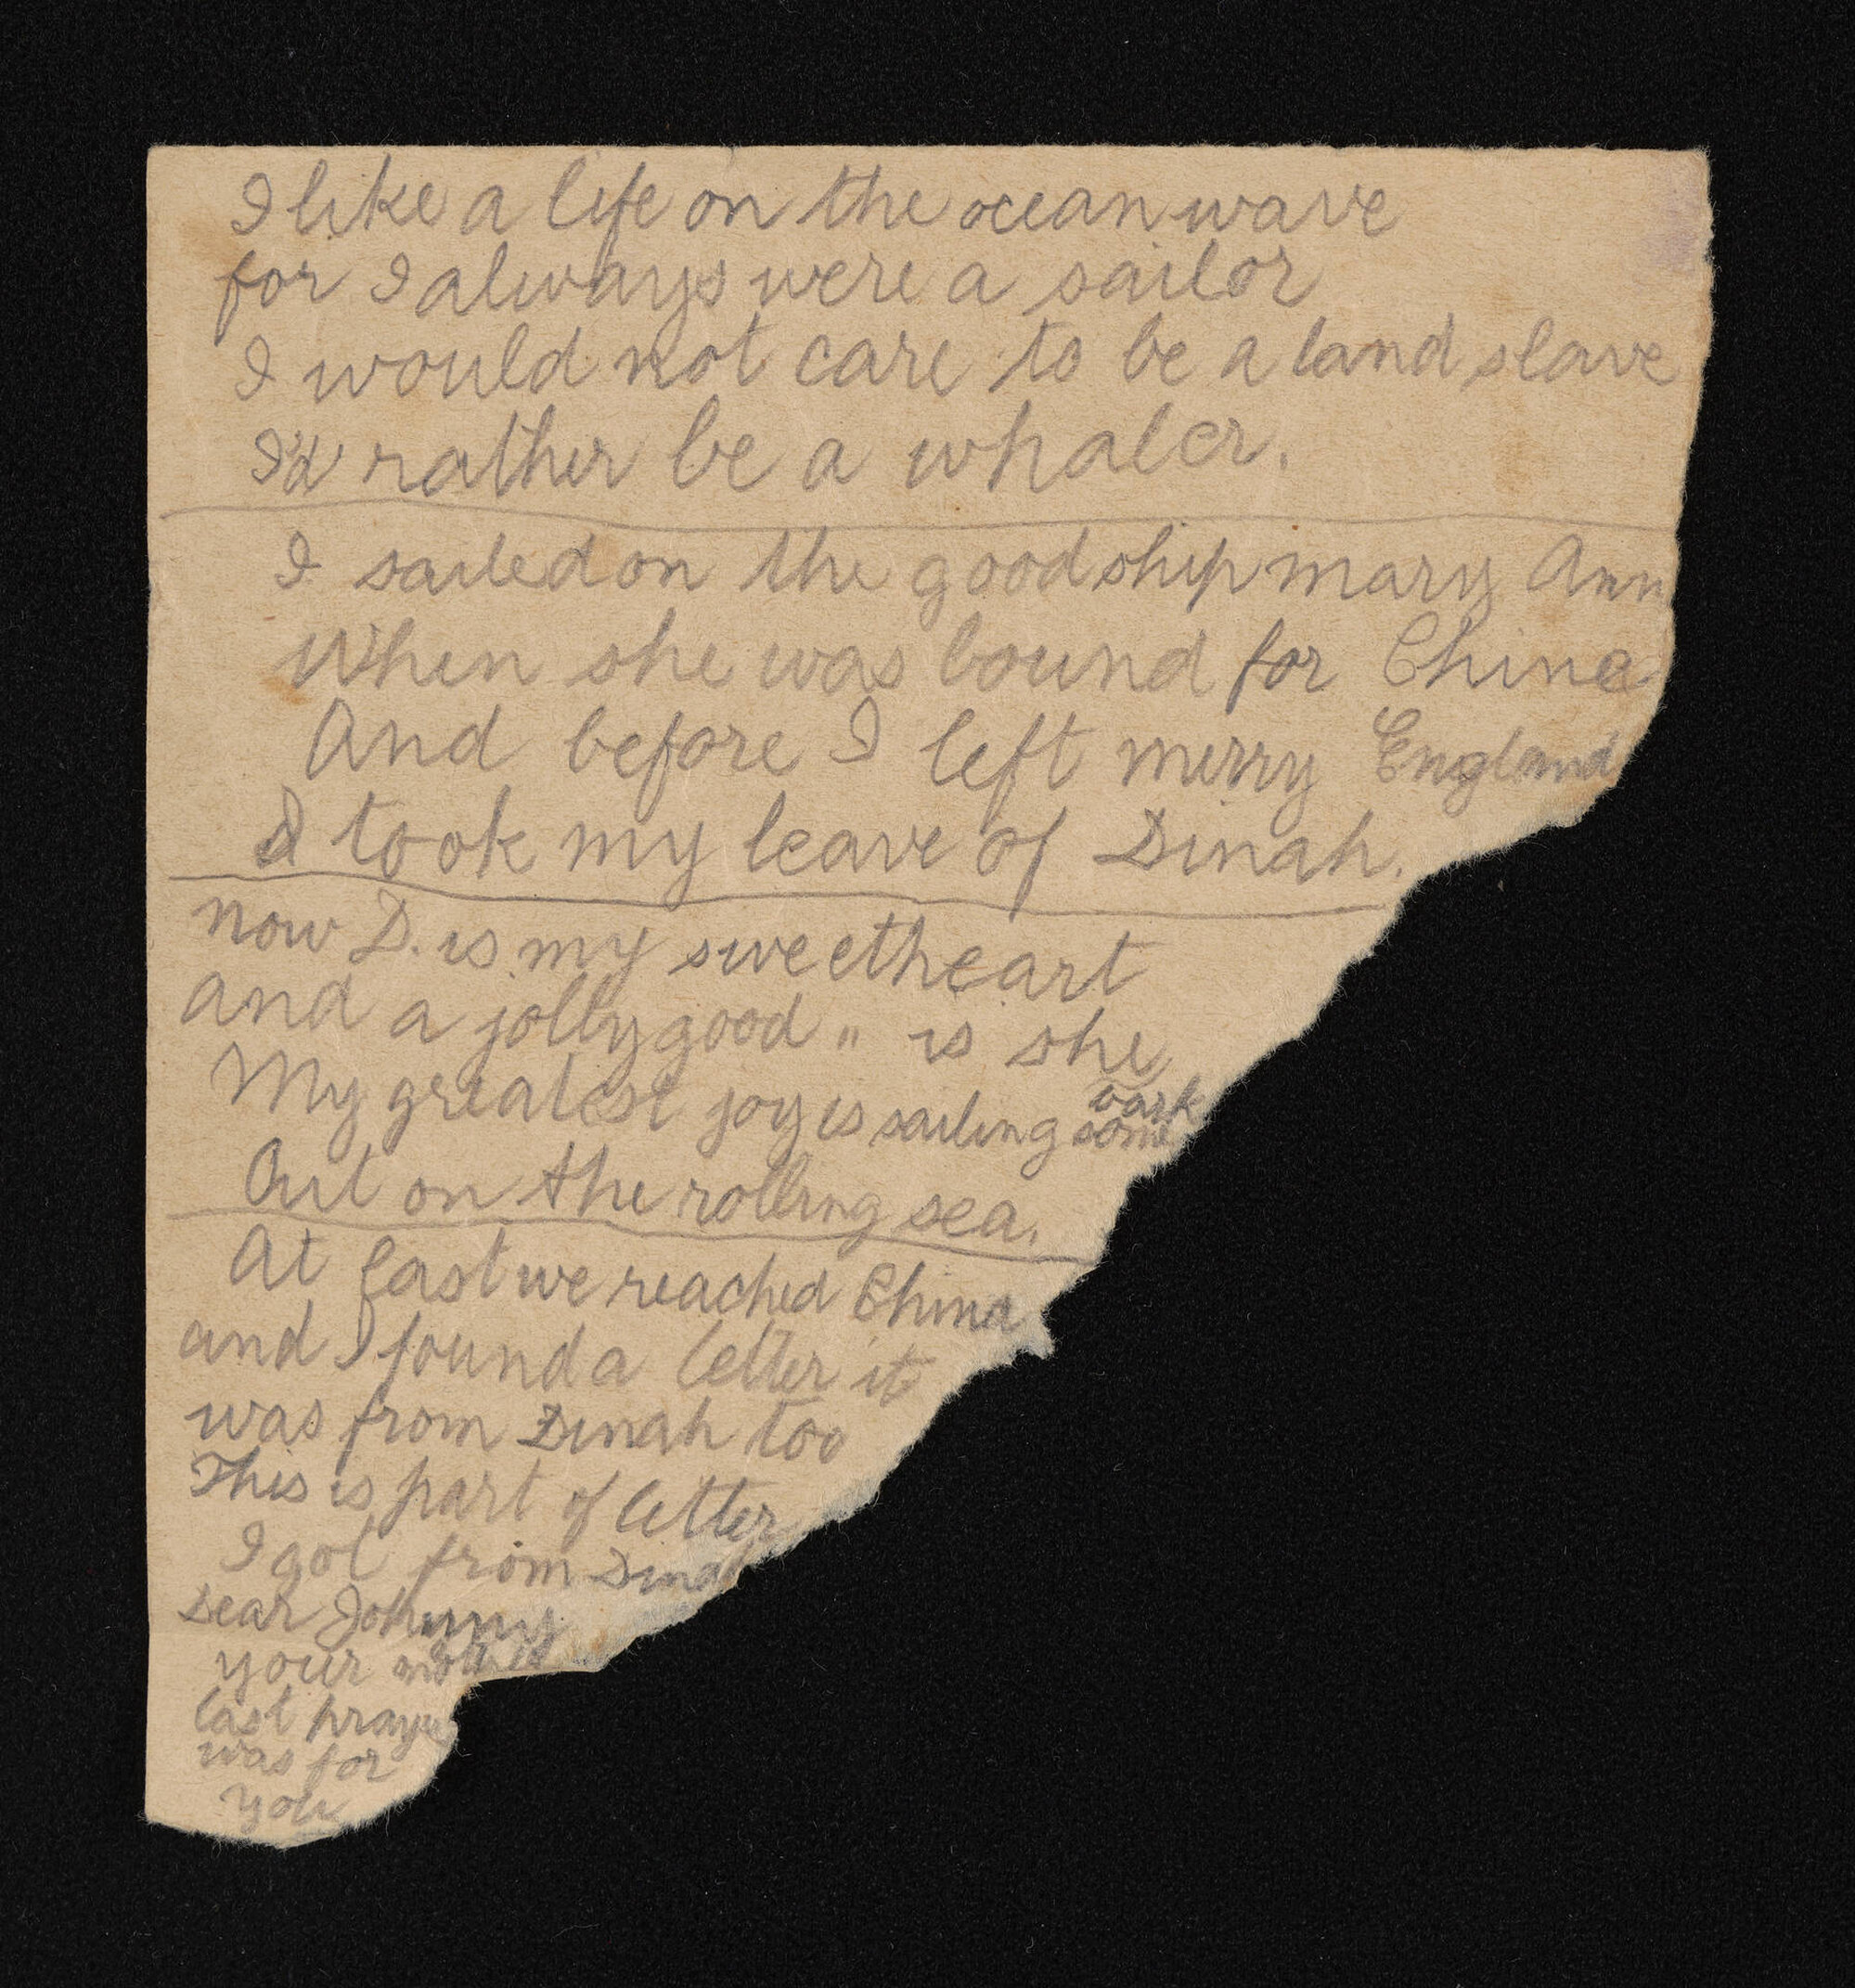 I like a life on the ocean wave
for I always were a sailor
I would not care to be a land slave
I'd rather be a whaler.
I sailed on the good ship mary Ann
When she was bound for China
And before I left merry England
I took my leave of Dinah.
now D. is my sweetheart
and a jolly good " is she
My greatest joy is sailing some bark
Out on the rolling sea.
At last we reached China
and I found a letter it
was from Dinah too
This is part of letter
I got from Dinah
Dear Johnny
your
last prayer
was for
you